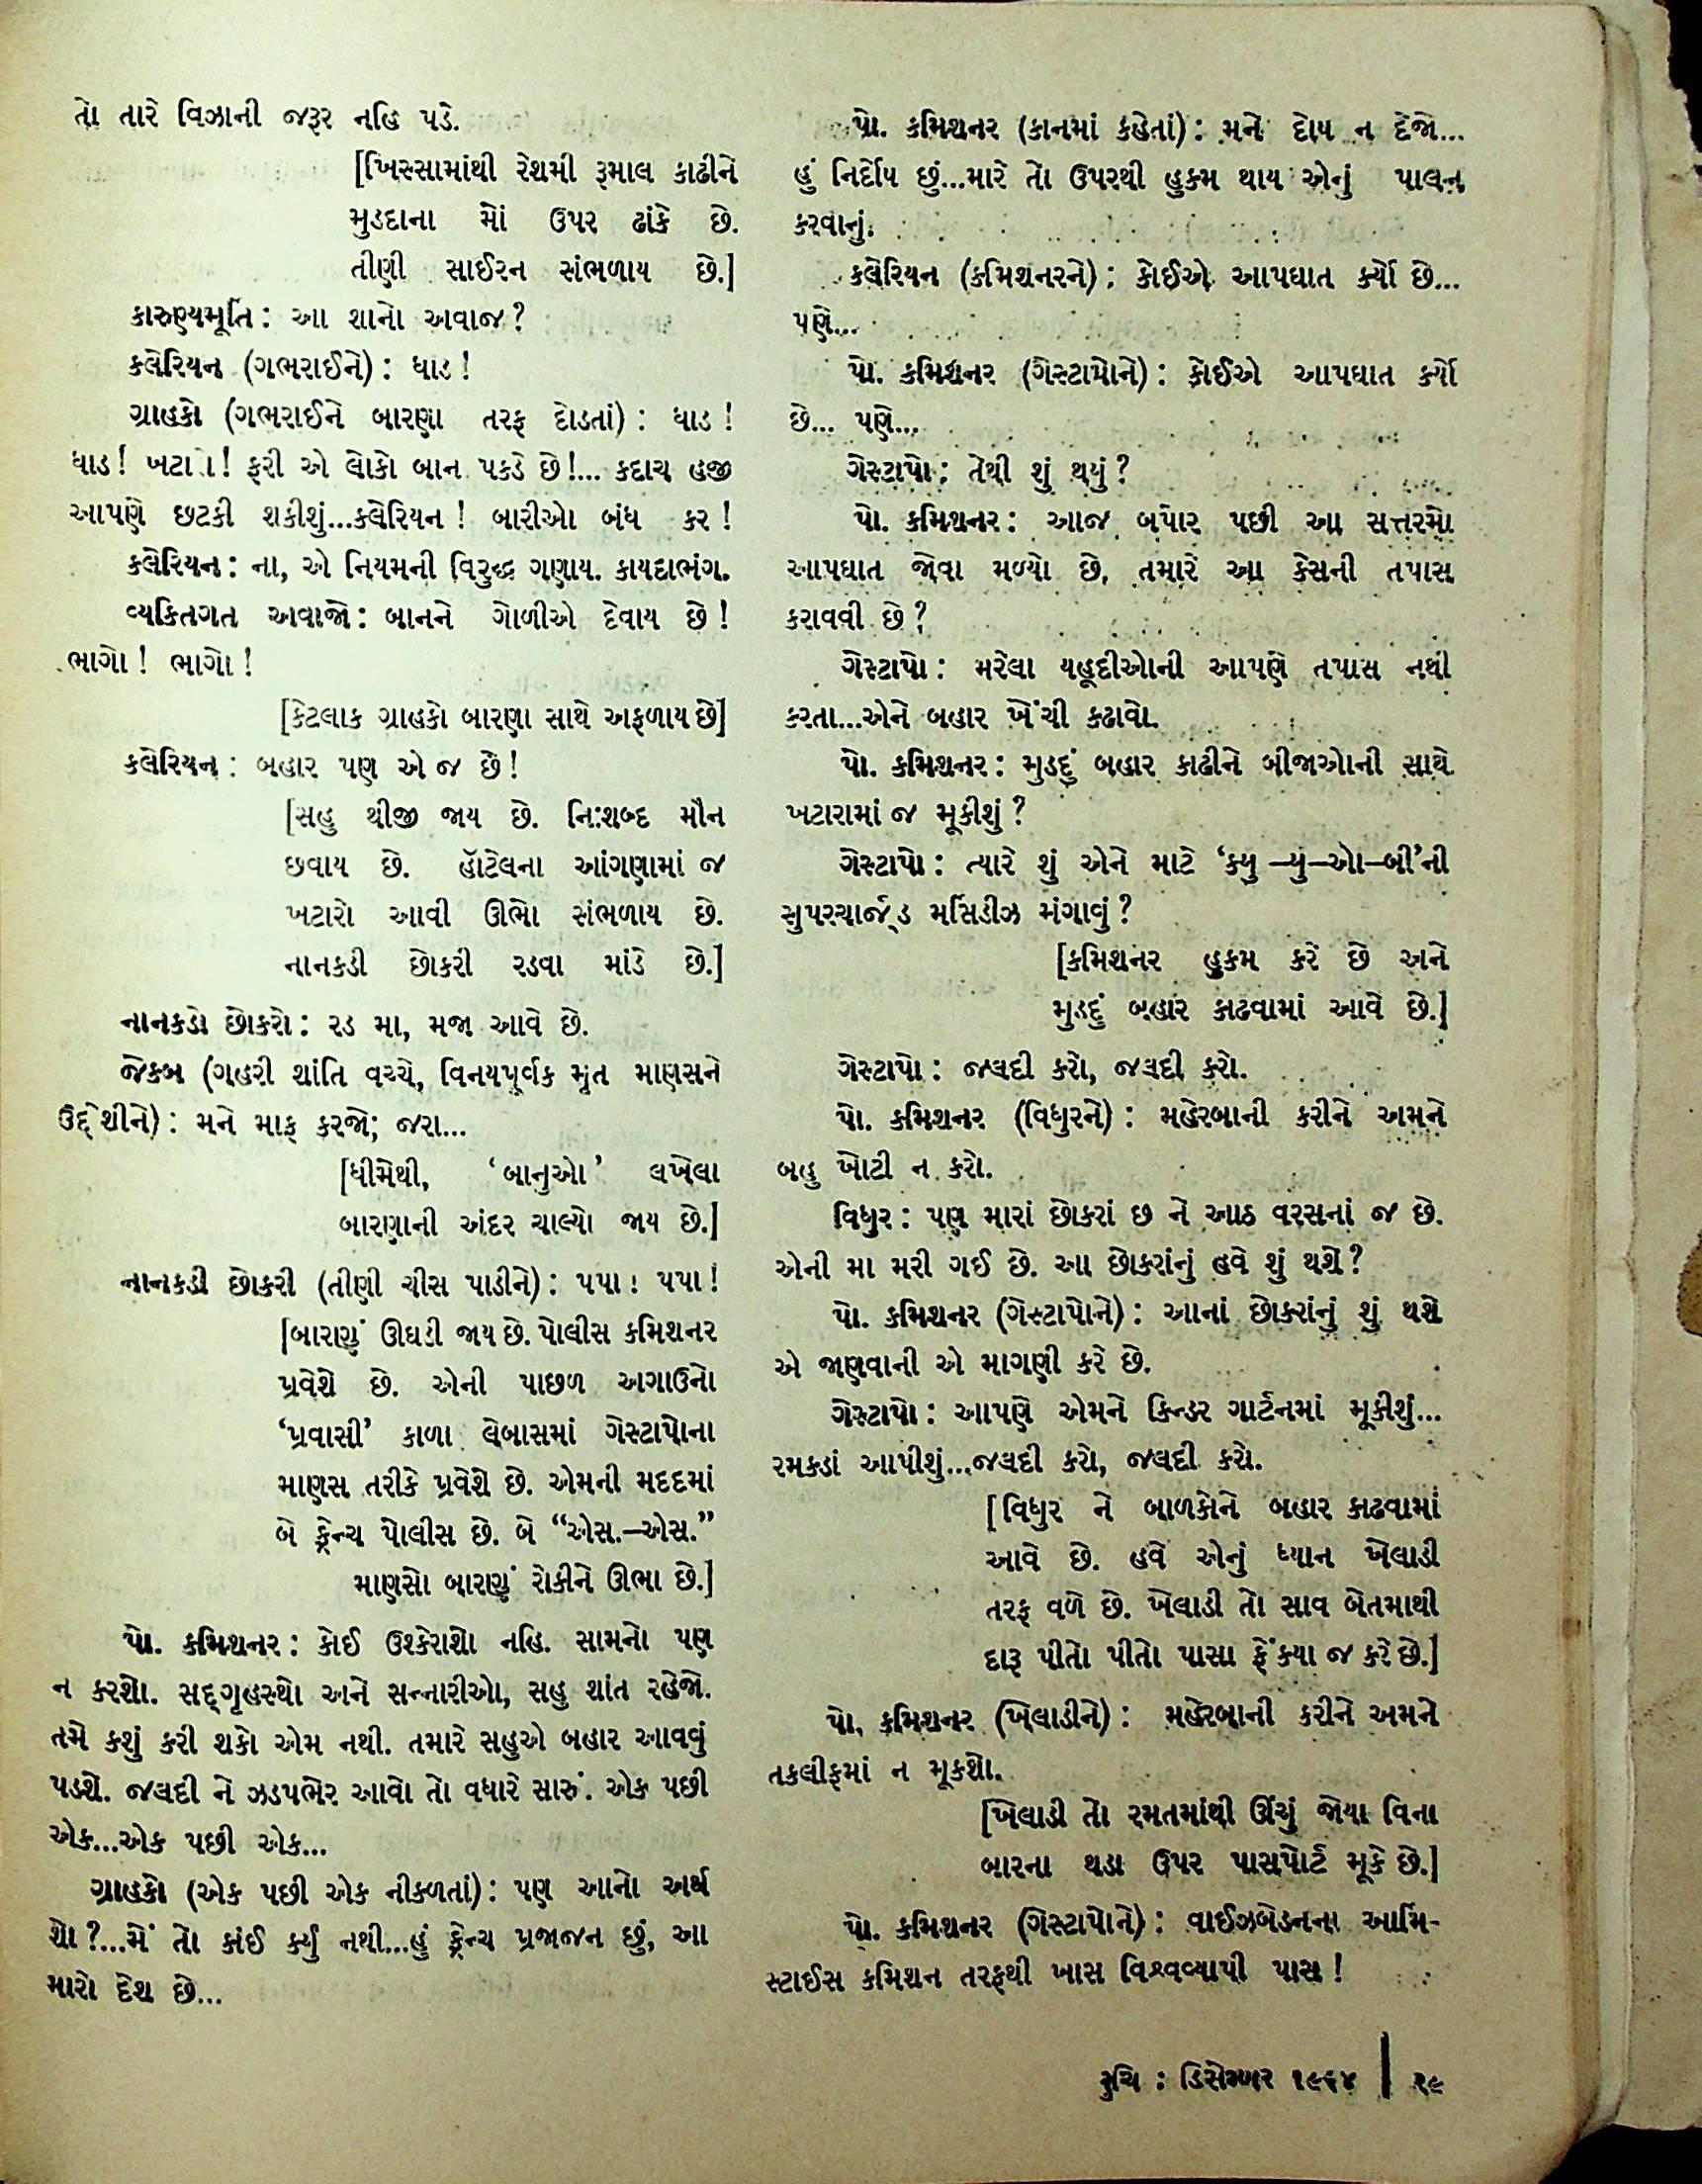 તો તારે વિઝાની જરૂર નહિ પડે.
[ખિસ્સામાંથી રેશમી રૂમાલ કાઢીને
મુડદાના મોં ઉપર ઢાંકે છે.
તીણી સાઈરન સંભળાય છે.]
કારુણ્યમૂર્તિ: આ શાનો અવાજ?
કલેરિયન (ગભરાઈને): ધાડ!
ગ્રાહકો (ગભરાઈને બારણા તરફ દોડતાં): ધાડ!
ધાડ! ફરી એ લોકો બાન પકડે છે!... કદાચ હજી
આપણે છટકી શકીશું...ક્લેરિયન! બારીઓ બંધ કર!
ક્લેરિયન: ના, એ નિયમની વિરુદ્ધ ગણાય. કાયદાભંગ.
વ્યકિતગત અવાજો: બાનને ગોળીએ દેવાય છે!
ભાગો! ભાગો!
[કેટલાક ગ્રાહકો બારણા સાથે અફળાય છે]
કલેરિયન: બહાર પણ એ જ છે!
[સહુ થીજી જાય છે. નિ:શબ્દ મૌન
છવાય છે. હૉટેલના આંગણામાં જ
ખટારો આવી ઊભો સંભળાય છે.
નાનકડી છોકરી રડવા માંડે છે.]
નાનકડો છોકરો: રડ મા, મજા આવે છે.
જેકબ (ગહરી શાંતિ વચ્ચે, વિનયપૂર્વક મૃત માણસને
ઉદ્દેશીને): મને માફ કરજો; જરા...
[ધીમેથી, ‘બાનુઓ’ લખેલા
બારણાની અંદર ચાલ્યો જાય છે.]
નાનકડી છોકરી (તીણી ચીસ પાડીને): પપા! પપા!
[બારણું ઊઘડી જાય છે. પોલીસ કમિશનર
પ્રવેશે છે. એની પાછળ અગાઉનો
‘પ્રવાસી’ કાળા લેબાસમાં ગેસ્ટાપોના
માણસ તરીકે પ્રવેશે છે. એમની મદદમાં
બે ફ્રેન્ચ પોલીસ છે. બે “એસ.–એસ.”
માણસો બારણું રોકીને ઊભા છે.]
પો. કમિશનર: કોઈ ઉશ્કેરાશો નહિ. સામનો પણ
ન કરશો. સદ્ગૃહસ્થો અને સન્નારીઓ, સહુ શાંત રહેજો.
તમે કશું કરી શકો એમ નથી. તમારે સહુએ બહાર આવવું
પડશે. જલદી ને ઝડપભેર આવો તો વધારે સારું. એક પછી
એક...એક પછી એક...
ગ્રાહકો (એક પછી એક નીકળતાં): પણ આનો અર્થ
શો?...મેં તો કાંઈ કર્યું નથી...હું ફ્રેન્ચ પ્રજાજન છું, આ
મારો દેશ છે...
પો. કમિશનર (કાનમાં કહેતાં): મને દોષ ન દેજો...
હું નિર્દોષ છું...મારે તો ઉપરથી હુકમ થાય એનું પાલન
કરવાનું.
કલેરિયન (કમિશનરને): કોઈએ આપઘાત કર્યો છે...
પણે...
પો. કમિશનર (ગેસ્ટાપોને): કોઈએ આપઘાત કર્યો
છે... પણે...
ગેસ્ટાપો: તેથી શું થયું?
પો. કમિશનર: આજ બપોર પછી આ સત્તરમો
આપઘાત જોવા મળ્યો છે, તમારે આ કેસની તપાસ
કરાવવી છે?
ગેસ્ટાપો: મરેલા યહૂદીઓની આપણે તપાસ નથી
કરતા...એને બહાર ખેંચી કઢાવો.
પો. કમિશનર: મુડદું બહાર કાઢીને બીજાઓની સાથે
ખટારામાં જ મૂકીશું?
ગેસ્ટાપો: ત્યારે શું એને માટે ‘ક્યુ–યુ–ઓ–બી’ની
સુપરચાર્જ્ડ મર્સિડીઝ મંગાવું?
[કમિશનર હુકમ કરે છે અને
મુડદું બહાર કાઢવામાં આવે છે.]
ગેસ્ટાપો: જલદી કરો, જલદી કરો.
પો. કમિશનર (વિધુરને): મહેરબાની કરીને અમને
બહુ ખોટી ન કરો.
વિધુર: પણ મારાં છોકરાં છ ને આઠ વરસનાં જ છે.
એની મા મરી ગઈ છે. આ છોકરાંનું હવે શું થશે?
પો. કમિશનર (ગેસ્ટાપોને): આનાં છોકરાંનું શું થશે
એ જાણવાની એ માગણી કરે છે.
ગેસ્ટાપો: આપણે એમને કિન્ડર ગાર્ટનમાં મૂકીશું...
રમકડાં આપીશું...જલદી કરો, જલદી કરો.
[વિધુર ને બાળકોને બહાર કાઢવામાં
આવે છે. હવે એનું ધ્યાન ખેલાડી
તરફ વળે છે. ખેલાડી તો સાવ બેતમાથી
દારૂ પીતો પીતો પાસા ફેંક્યા જ કરે છે.]
પો. કમિશનર (ખેલાડીને): મહેરબાની કરીને અમને
તકલીફમાં ન મૂકશો.
[ખેલાડી તો રમતમાંથી ઊંચું જોયા વિના
બારના થડા ઉપર પાસપોર્ટ મૂકે છે.]
પો. કમિશનર (ગેસ્ટાપોને): વાઈઝબેડનના આર્મિ-
સ્ટાઈસ કમિશન તરફથી ખાસ વિશ્વવ્યાપી પાસ!
રુચિ : ડિસેમ્બર ૧૯૬૪ | ૨૯